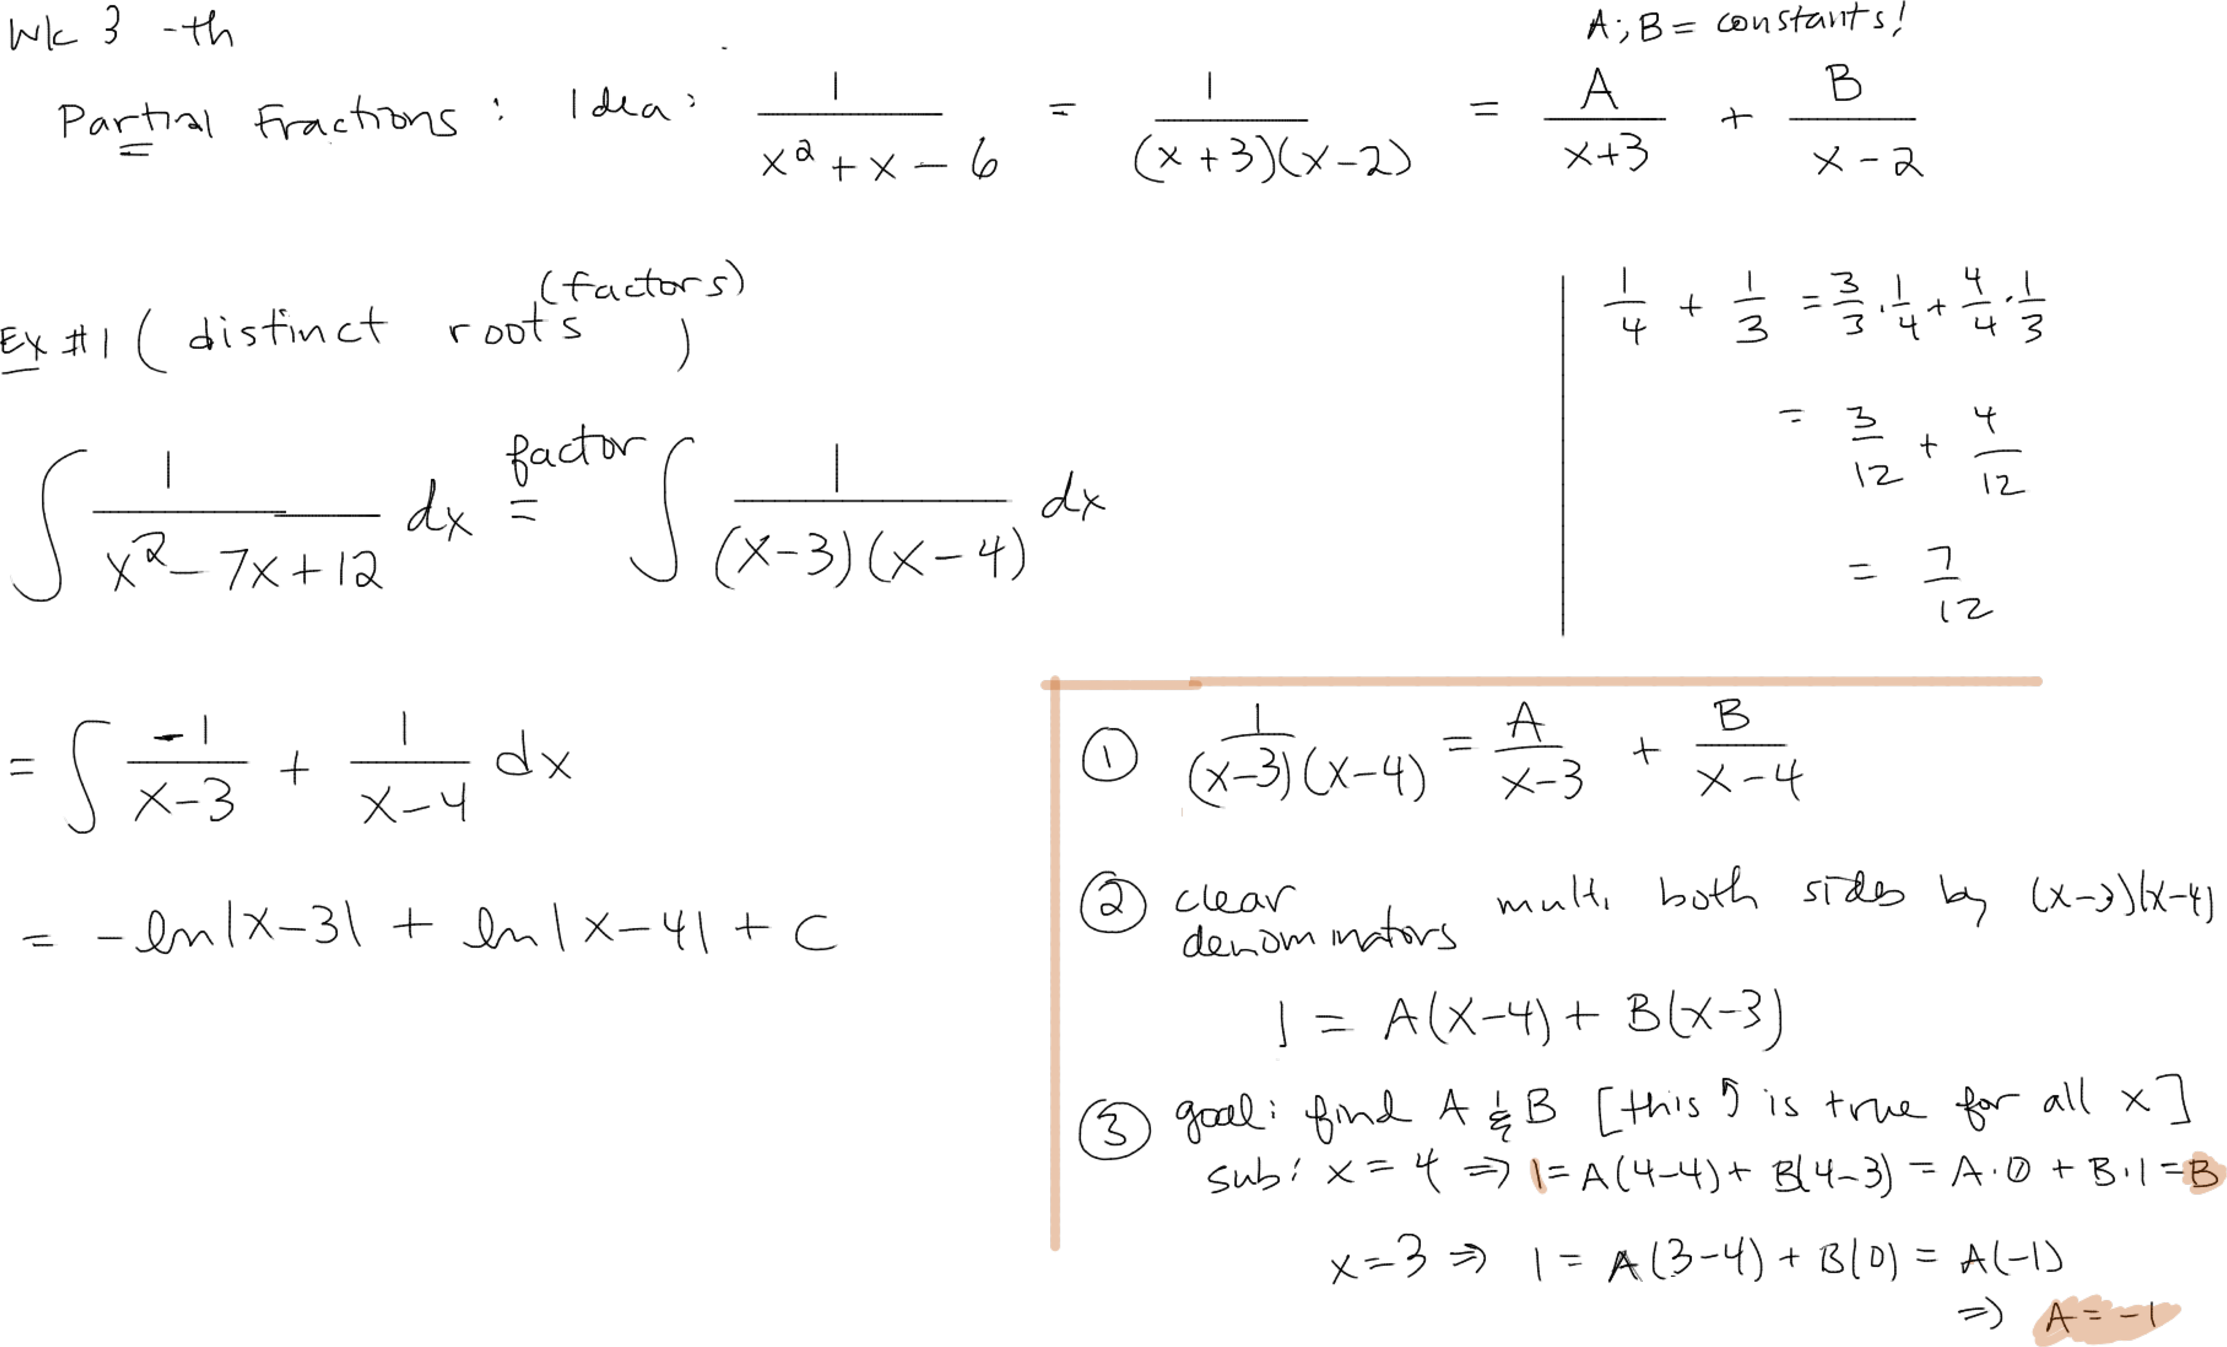 Wk 3 -th
A; B = constants!
Partial Fractions: Idea: 1/(x² + x - 6) = 1/((x+3)(x-2)) = A/(x+3) + B/(x-2)
Ex #1 (distinct roots (factors))
∫ 1/(x² - 7x + 12) dx factor = ∫ 1/((x-3)(x-4)) dx
= ∫ -1/(x-3) + 1/(x-4) dx
= -ln|x-3| + ln|x-4| + C
1/4 + 1/3 = 3/3 · 1/4 + 4/4 · 1/3
= 3/12 + 4/12
= 7/12
① 1/((x-3)(x-4)) = A/(x-3) + B/(x-4)
② clear denominators mult. both sides by (x-3)(x-4)
1 = A(x-4) + B(x-3)
③ goal: find A & B [this ↑ is true for all x]
sub: x = 4 ⇒ 1 = A(4-4) + B(4-3) = A·0 + B·1 = B
x = 3 ⇒ 1 = A(3-4) + B(0) = A(-1)
⇒ A = -1